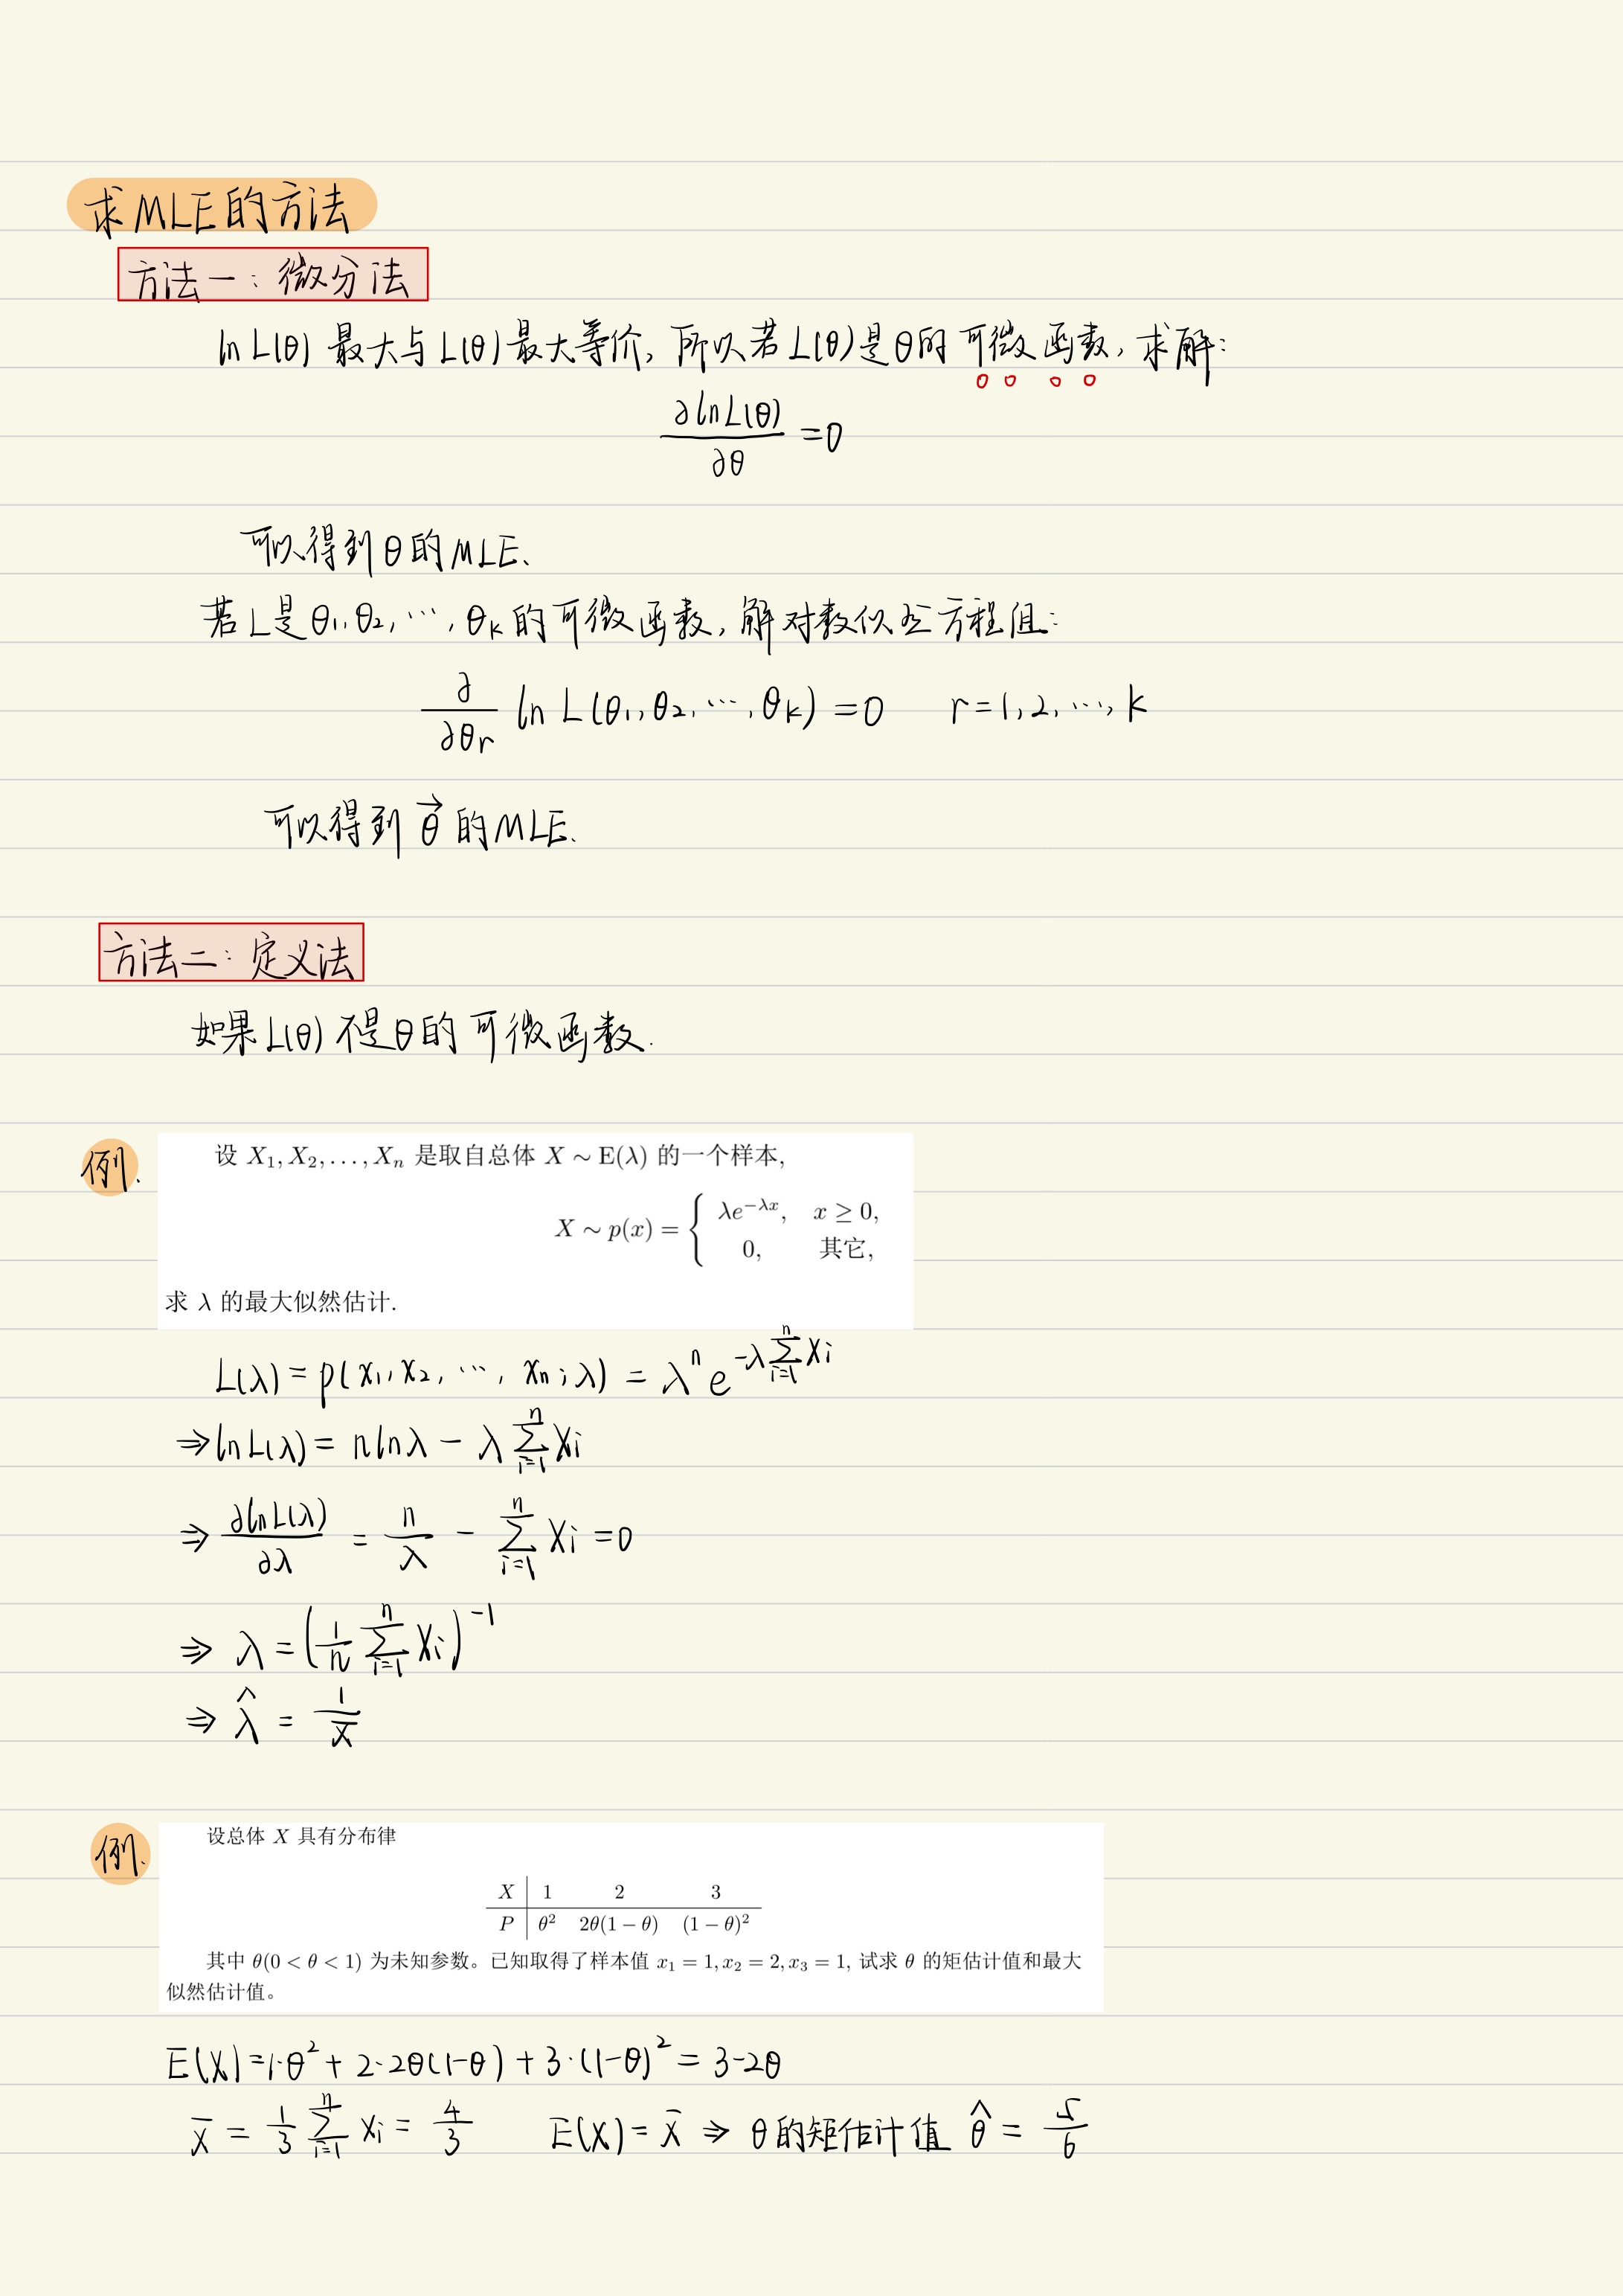 求MLE的方法
方法一：微分法
ln L(θ) 最大与L(θ)最大等价, 所以若L(θ)是θ的可微函数, 求解:
∂lnL(θ)/∂θ = 0
可以得到θ的MLE.
若L是θ₁,θ₂,⋯,θₖ的可微函数, 解对数似然方程组:
∂/∂θᵣ ln L(θ₁,θ₂,⋯,θₖ) = 0 r=1,2,⋯,k
可以得到θ⃗的MLE.
方法二：定义法
如果L(θ)不是θ的可微函数.
例.
设 X₁, X₂, ..., Xₙ 是取自总体 X ∼ E(λ) 的一个样本,
X ∼ p(x) = { λe^{−λx}, x ≥ 0,
0, 其它,
求 λ 的最大似然估计.
L(λ) = p(x₁,x₂,⋯,xₙ;λ) = λⁿ e^{−λ∑_{i=1}^{n} xᵢ}
⇒ lnL(λ) = nlnλ − λ∑_{i=1}^{n} xᵢ
⇒ ∂lnL(λ)/∂λ = n/λ − ∑_{i=1}^{n} xᵢ = 0
⇒ λ = (1/n ∑_{i=1}^{n} xᵢ)^{−1}
⇒ λ̂ = 1/x̄
例.
设总体 X 具有分布律
X | 1 2 3
P | θ² 2θ(1 − θ) (1 − θ)²
其中 θ(0 < θ < 1) 为未知参数。已知取得了样本值 x₁ = 1, x₂ = 2, x₃ = 1, 试求 θ 的矩估计值和最大
似然估计值。
E(X) = 1·θ² + 2·2θ(1−θ) + 3·(1−θ)² = 3−2θ
x̄ = 1/3 ∑_{i=1}^{n} xᵢ = 4/3 E(X) = x̄ ⇒ θ的矩估计值 θ̂ = 5/6